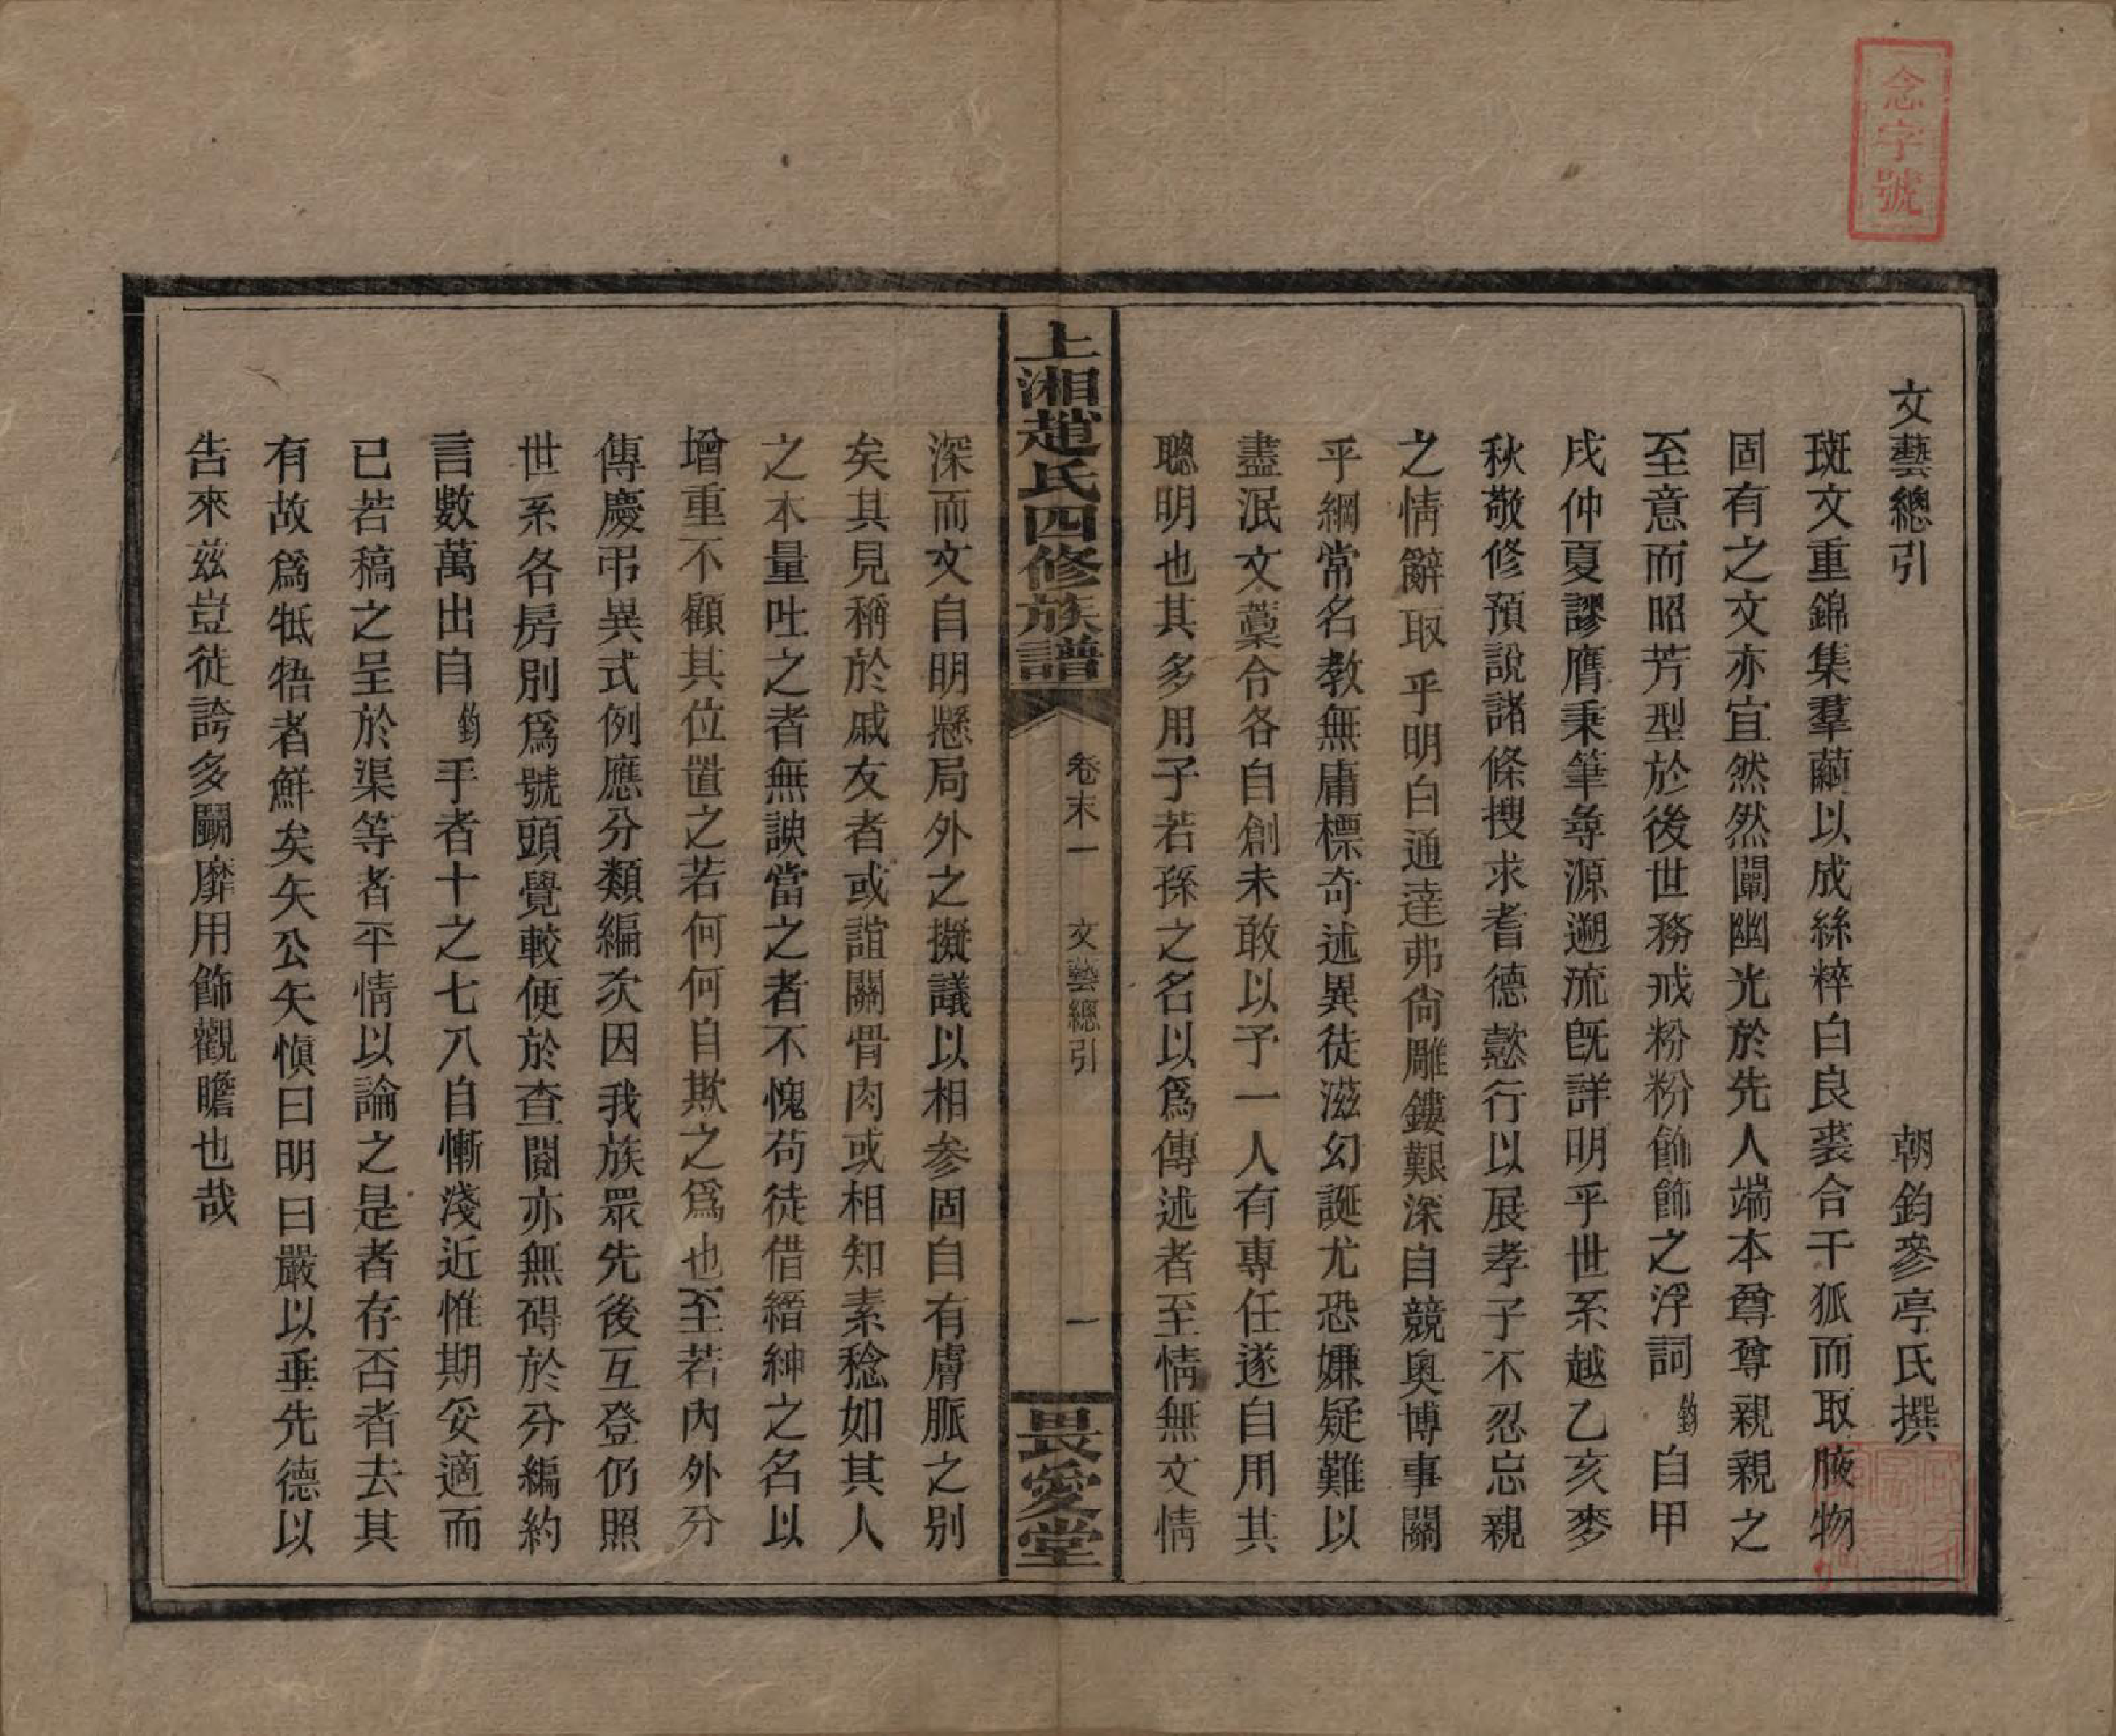 念字號
文藝總引
朝鈞參亭氏撰
斑文重錦集羣繭以成絲粹白良裘合千狐而取腋物
固有之文亦宜然然闡幽光於先人端本尊尊親親之
至意而昭芳型於後世務戒粉粉飾飾之浮詞鈞自甲
戌仲夏謬膺秉筆尋源遡流旣詳明乎世系越乙亥麥
秋敬修預說諸條搜求耆德懿行以展孝子不忍忘親
之情辭取乎明白通達弗尙雕鏤艱深自競奧博事關
乎綱常名教無庸標奇述異徒滋幻誕尤恐嫌疑難以
盡泯文藁令各自創未敢以予一人有專任遂自用其
聰明也其多用子若孫之名以爲傳述者至情無文情
上湘趙氏四修族譜
卷末一
文藝總引
一
畏愛堂
深而文自明懸局外之擬議以相參固自有膚脈之別
矣其見稱於戚友者或誼關骨肉或相知素稔如其人
之本量吐之者無諛當之者不愧苟徒借縉紳之名以
增重不顧其位置之若何何自欺之爲也至若內外分
傳慶弔異式例應分類編次因我族眾先後互登仍照
世系各房別爲號頭覺較便於查閱亦無碍於分編約
言數萬出自鈞手者十之七八自慚淺近惟期妥適而
已若稿之呈於渠等者平情以論之是者存否者去其
有故爲牴牾者鮮矣矢公矢愼曰明曰嚴以垂先德以
告來兹豈徒誇多鬭靡用飾觀瞻也哉